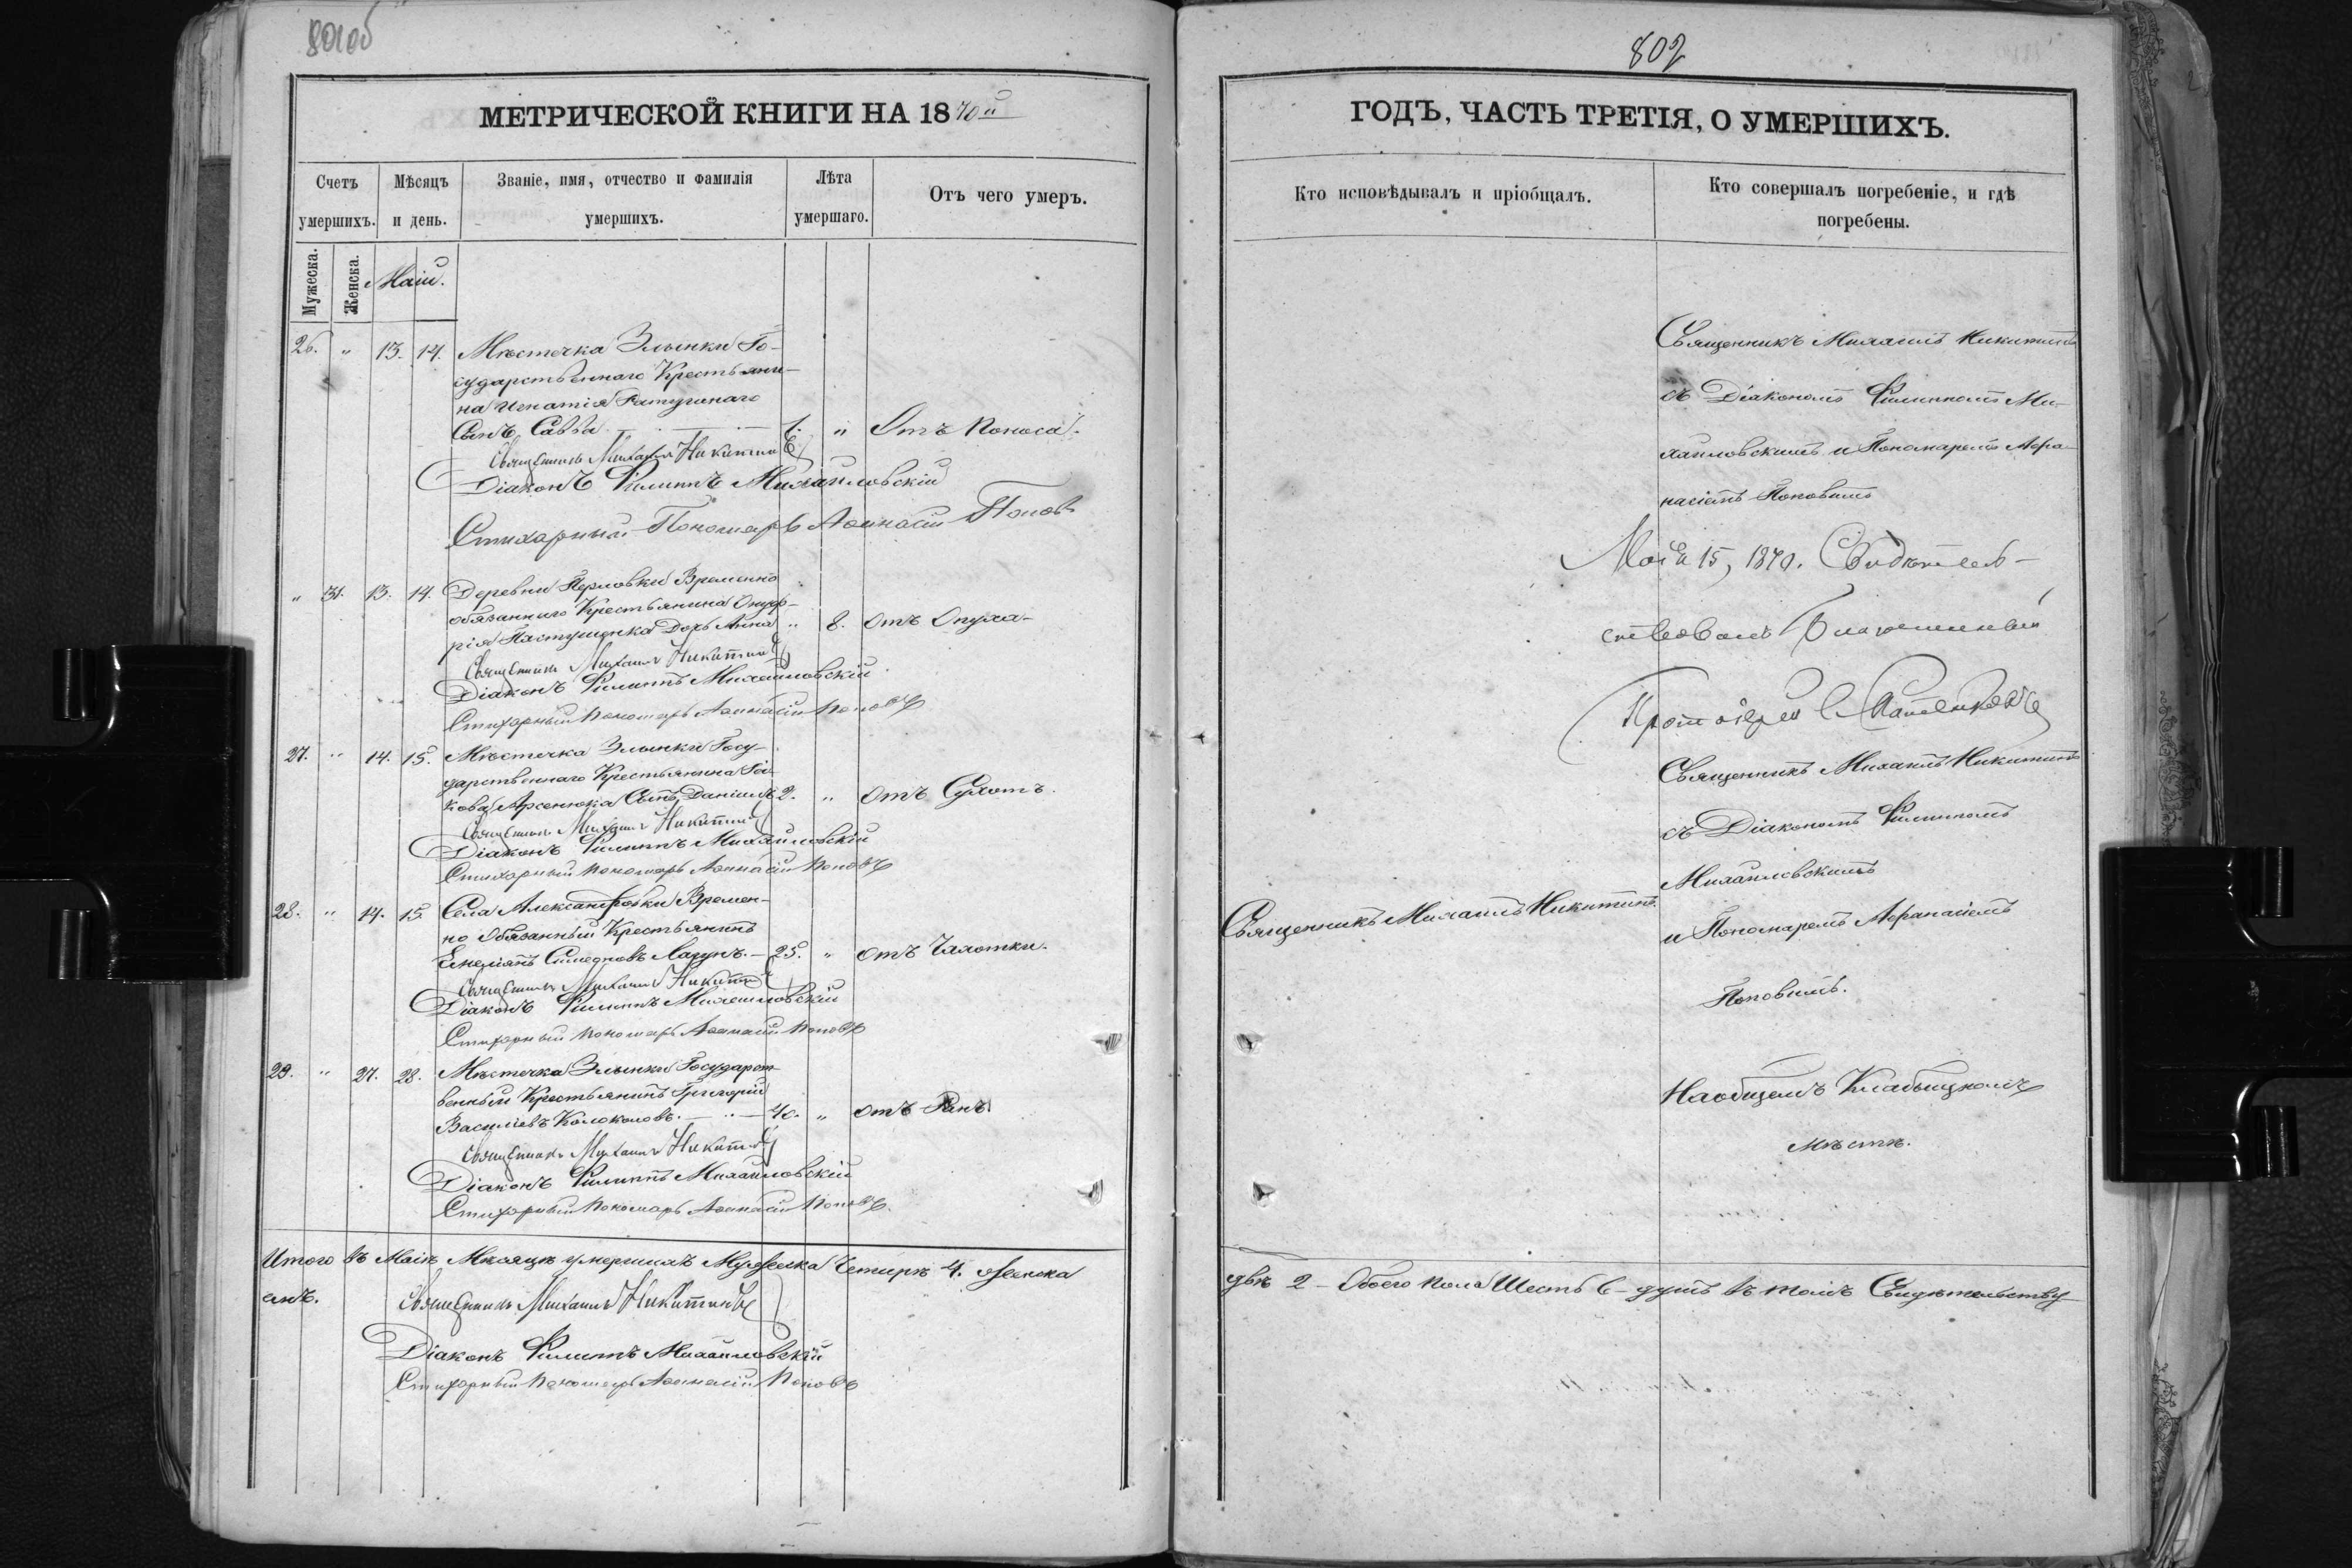 801об
МЕТРИЧЕСКОЙ КНИГИ НА 1870й
Счетъ умершихъ.
Мѣсяцъ и день.
Званіе, имя, отчество и фамилія умершихъ.
Лѣта умершаго.
Отъ чего умеръ.
Мужеска.
Женска.
Маій.
26. " 13. 14. Мѣстечка Злынки Го-
сударственнаго Крестьяни-
на Игнатія
Сынъ Савва 1. " Отъ Поноса.
Священникъ Михаилъ Никитинъ
Діаконъ Филиппъ Михайловскій
Стихарный Пономарь Аѳанасій Поповъ
" 31. 13. 14. Деревни Временно
обязаннаго Крестьянина Онуф-
рія Пастушенка Дочь Анна " 8. Отъ Опуха-
Священникъ Михаилъ Никитинъ
Діаконъ Филиппъ Михайловскій
Стихарный Пономарь Аѳанасій Поповъ
27. " 14. 15. Мѣстечка Злынки Госу-
дарственнаго Крестьянина Іа-
кова Арсенюка Сынъ Даніилъ 2. " Отъ Сухотъ.
Священникъ Михаилъ Никитинъ
Діаконъ Филиппъ Михайловскій
Стихарный Пономарь Аѳанасій Поповъ
28. " 14. 15. Села Александровки Времен-
но Обязанный Крестьянинъ
Емеліянъ Симеоновъ 25. " Отъ Чахотки.
Священникъ Михаилъ Никитинъ
Діаконъ Филиппъ Михайловскій
Стихарный Пономарь Аѳанасій Поповъ
29. " 27. 28. Мѣстечка Злынки Государст-
венный Крестьянинъ Григорій
Василіевъ Колоколовъ. 40. " Отъ Ранъ.
Священникъ Михаилъ Никитинъ
Діаконъ Филиппъ Михайловскій
Стихарный Пономарь Аѳанасій Поповъ.
Итого въ Маіѣ Мѣсяцѣ умершихъ Мужеска Четыре 4. женска
Священникъ Михаилъ Никитинъ
Діаконъ Филиппъ Михайловскій
Стихарный Пономарь Аѳанасій Поповъ
802
ГОДЪ, ЧАСТЬ ТРЕТІЯ, О УМЕРШИХЪ.
Кто исповѣдывалъ и пріобщалъ.
Кто совершалъ погребеніе, и гдѣ погребены.
Священникъ Михаилъ Никитинъ
съ Діакономъ Филиппомъ Ми-
хайловскимъ и Пономаремъ Афа-
насіемъ Поповымъ
Маія 15, 1870. Свидѣтель-
ствовалъ Благочинный
Протоіерей
Священникъ Михаилъ Никитинъ
съ Діакономъ Филиппомъ
Михайловскимъ
Священникъ Михаилъ Никитинъ.
и Пономаремъ Афанасіемъ
Поповымъ.
На общемъ Кладбищномъ
мѣстѣ.
двѣ 2 - Обоего пола Шесть 6 - душъ въ томъ Свидѣтельству
емъ.